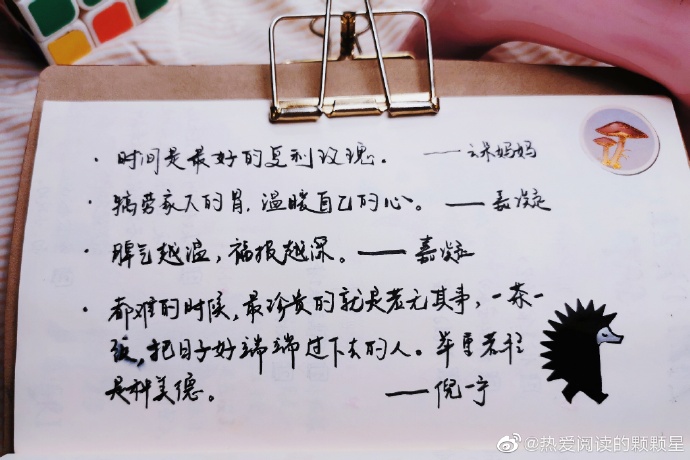 · 时间是最好的复利玫瑰。 ——禾妈妈
· 犒劳家人的胃,温暖自己的心。 ——嘉凝
· 脾气越温,福报越深。——嘉凝
· 都难的时候,最珍贵的就是若无其事,一茶一
饭,把日子好端端过下去的人。举重若轻
是种美德。 ——倪一宁
@热爱阅读的颗颗星